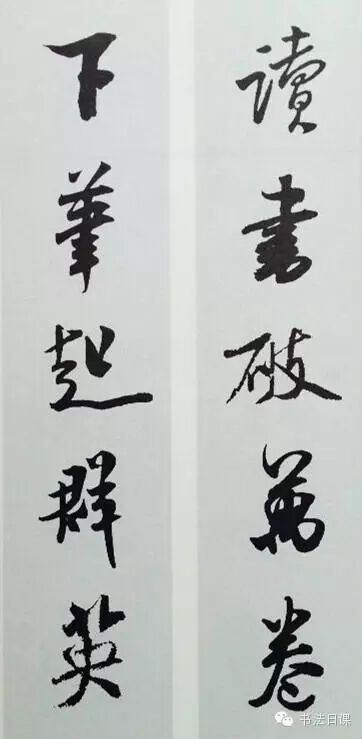 讀書破萬卷
下筆超群英
书法日课